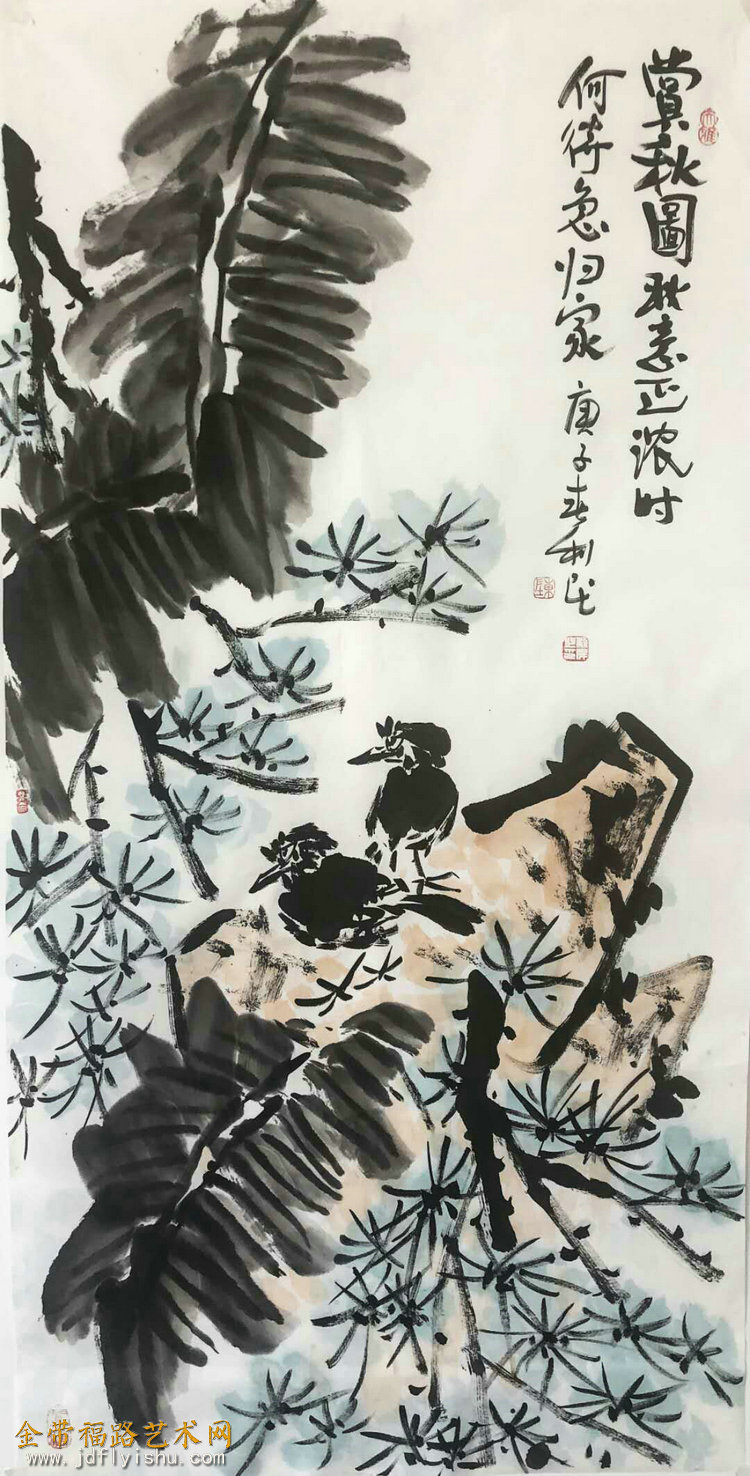 賞秋圖 秋意正浓时
何待急归家 庚子春利民
金带福路艺术网
www.jdflyishu.com